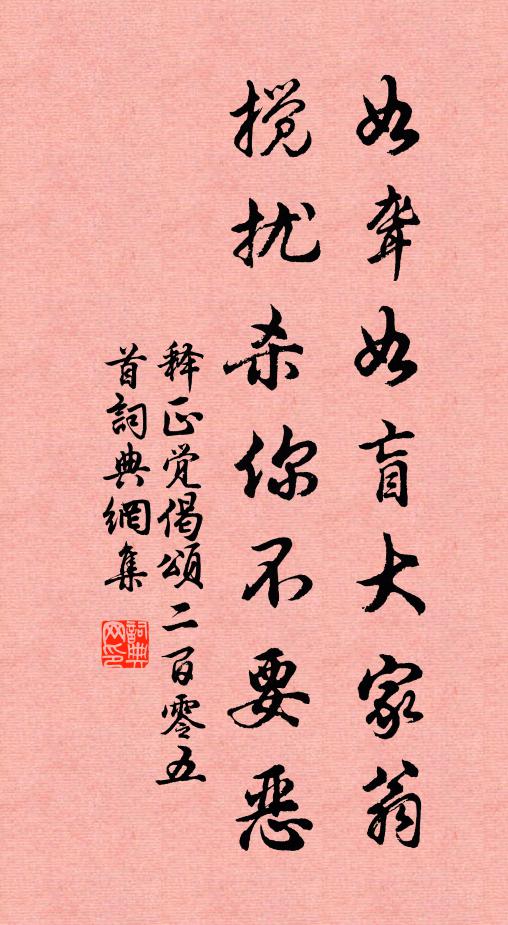 如聋如盲大家翁
搅扰杀你不要恶
释正觉偈頌二百零五
首詞典網集
詞典网印